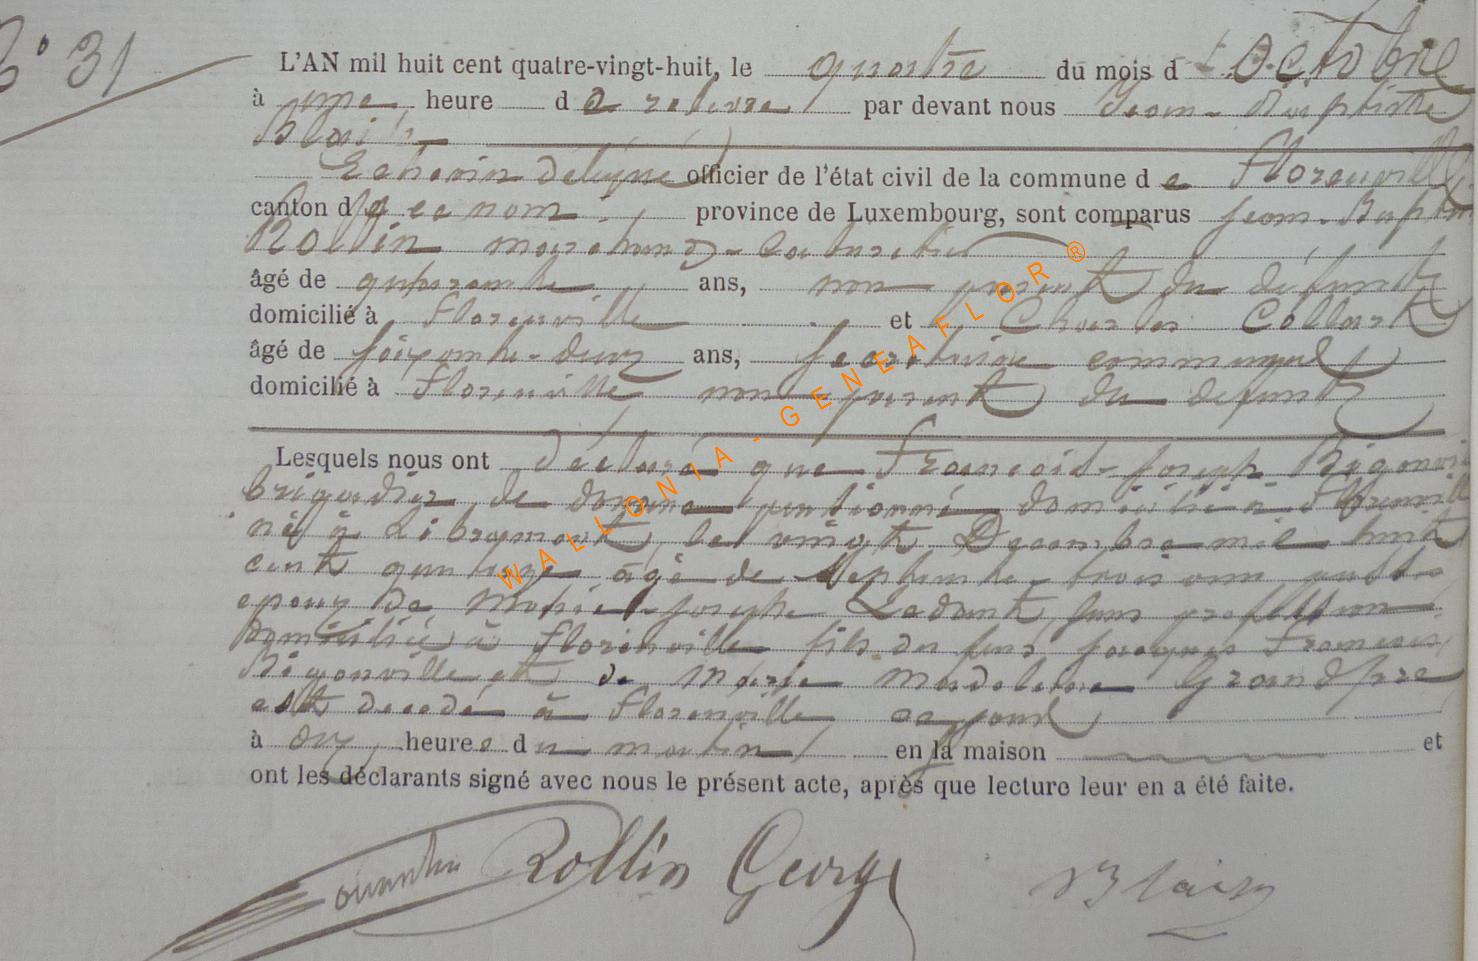 N° 31
L'AN mil huit cent quatre-vingt-huit, le quatre du mois d'Octobre
à une heure d de relevée par devant nous Jean-Baptiste
Blaise
Echevin délégué officier de l'état civil de la commune de Florenville
canton de ce nom, province de Luxembourg, sont comparus Jean-Baptiste
Rollin marchand-cabaretier
âgé de quarante ans, non parent du défunt
domicilié à Florenville et Charles Collart
âgé de soixante-deux ans, secrétaire communal
domicilié à Florenville non parent du defunt
Lesquels nous ont déclaré que François-Joseph Bigonville
brigadier de douane pentionné domicilié à Florenville
né à Libramont, le vingt Decembre mil huit
cent quatorze, âgé de septante-trois ans
epoux de Marie-Josephe Ladant, sans profession
domiciliée à Florenville fils de feus Jacques François
Bigonville et de Marie Madeleine Grandfere
est decedé à Florenville
à dix heures du matin en la maison et
ont les déclarants signé avec nous le présent acte, après que lecture leur en a été faite.
Rollin George Blaise
WALLONIA-GENEAFLOR®